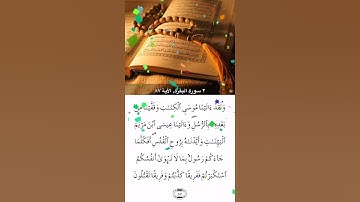 ٢ سورة البقرة, الآية ٨٧
وَلَقَدْ ءَاتَيْنَا مُوسَى ٱلْكِتَٰبَ وَقَفَّيْنَا مِنۢ
بَعْدِهِۦ بِٱلرُّسُلِ وَءَاتَيْنَا عِيسَى ٱبْنَ مَرْيَمَ
ٱلْبَيِّنَٰتِ وَأَيَّدْنَٰهُ بِرُوحِ ٱلْقُدُسِ أَفَكُلَّمَا
جَآءَكُمْ رَسُولٌۢ بِمَا لَا تَهْوَىٰٓ أَنفُسُكُمُ
ٱسْتَكْبَرْتُمْ فَفَرِيقًا كَذَّبْتُمْ وَفَرِيقًا تَقْتُلُونَ